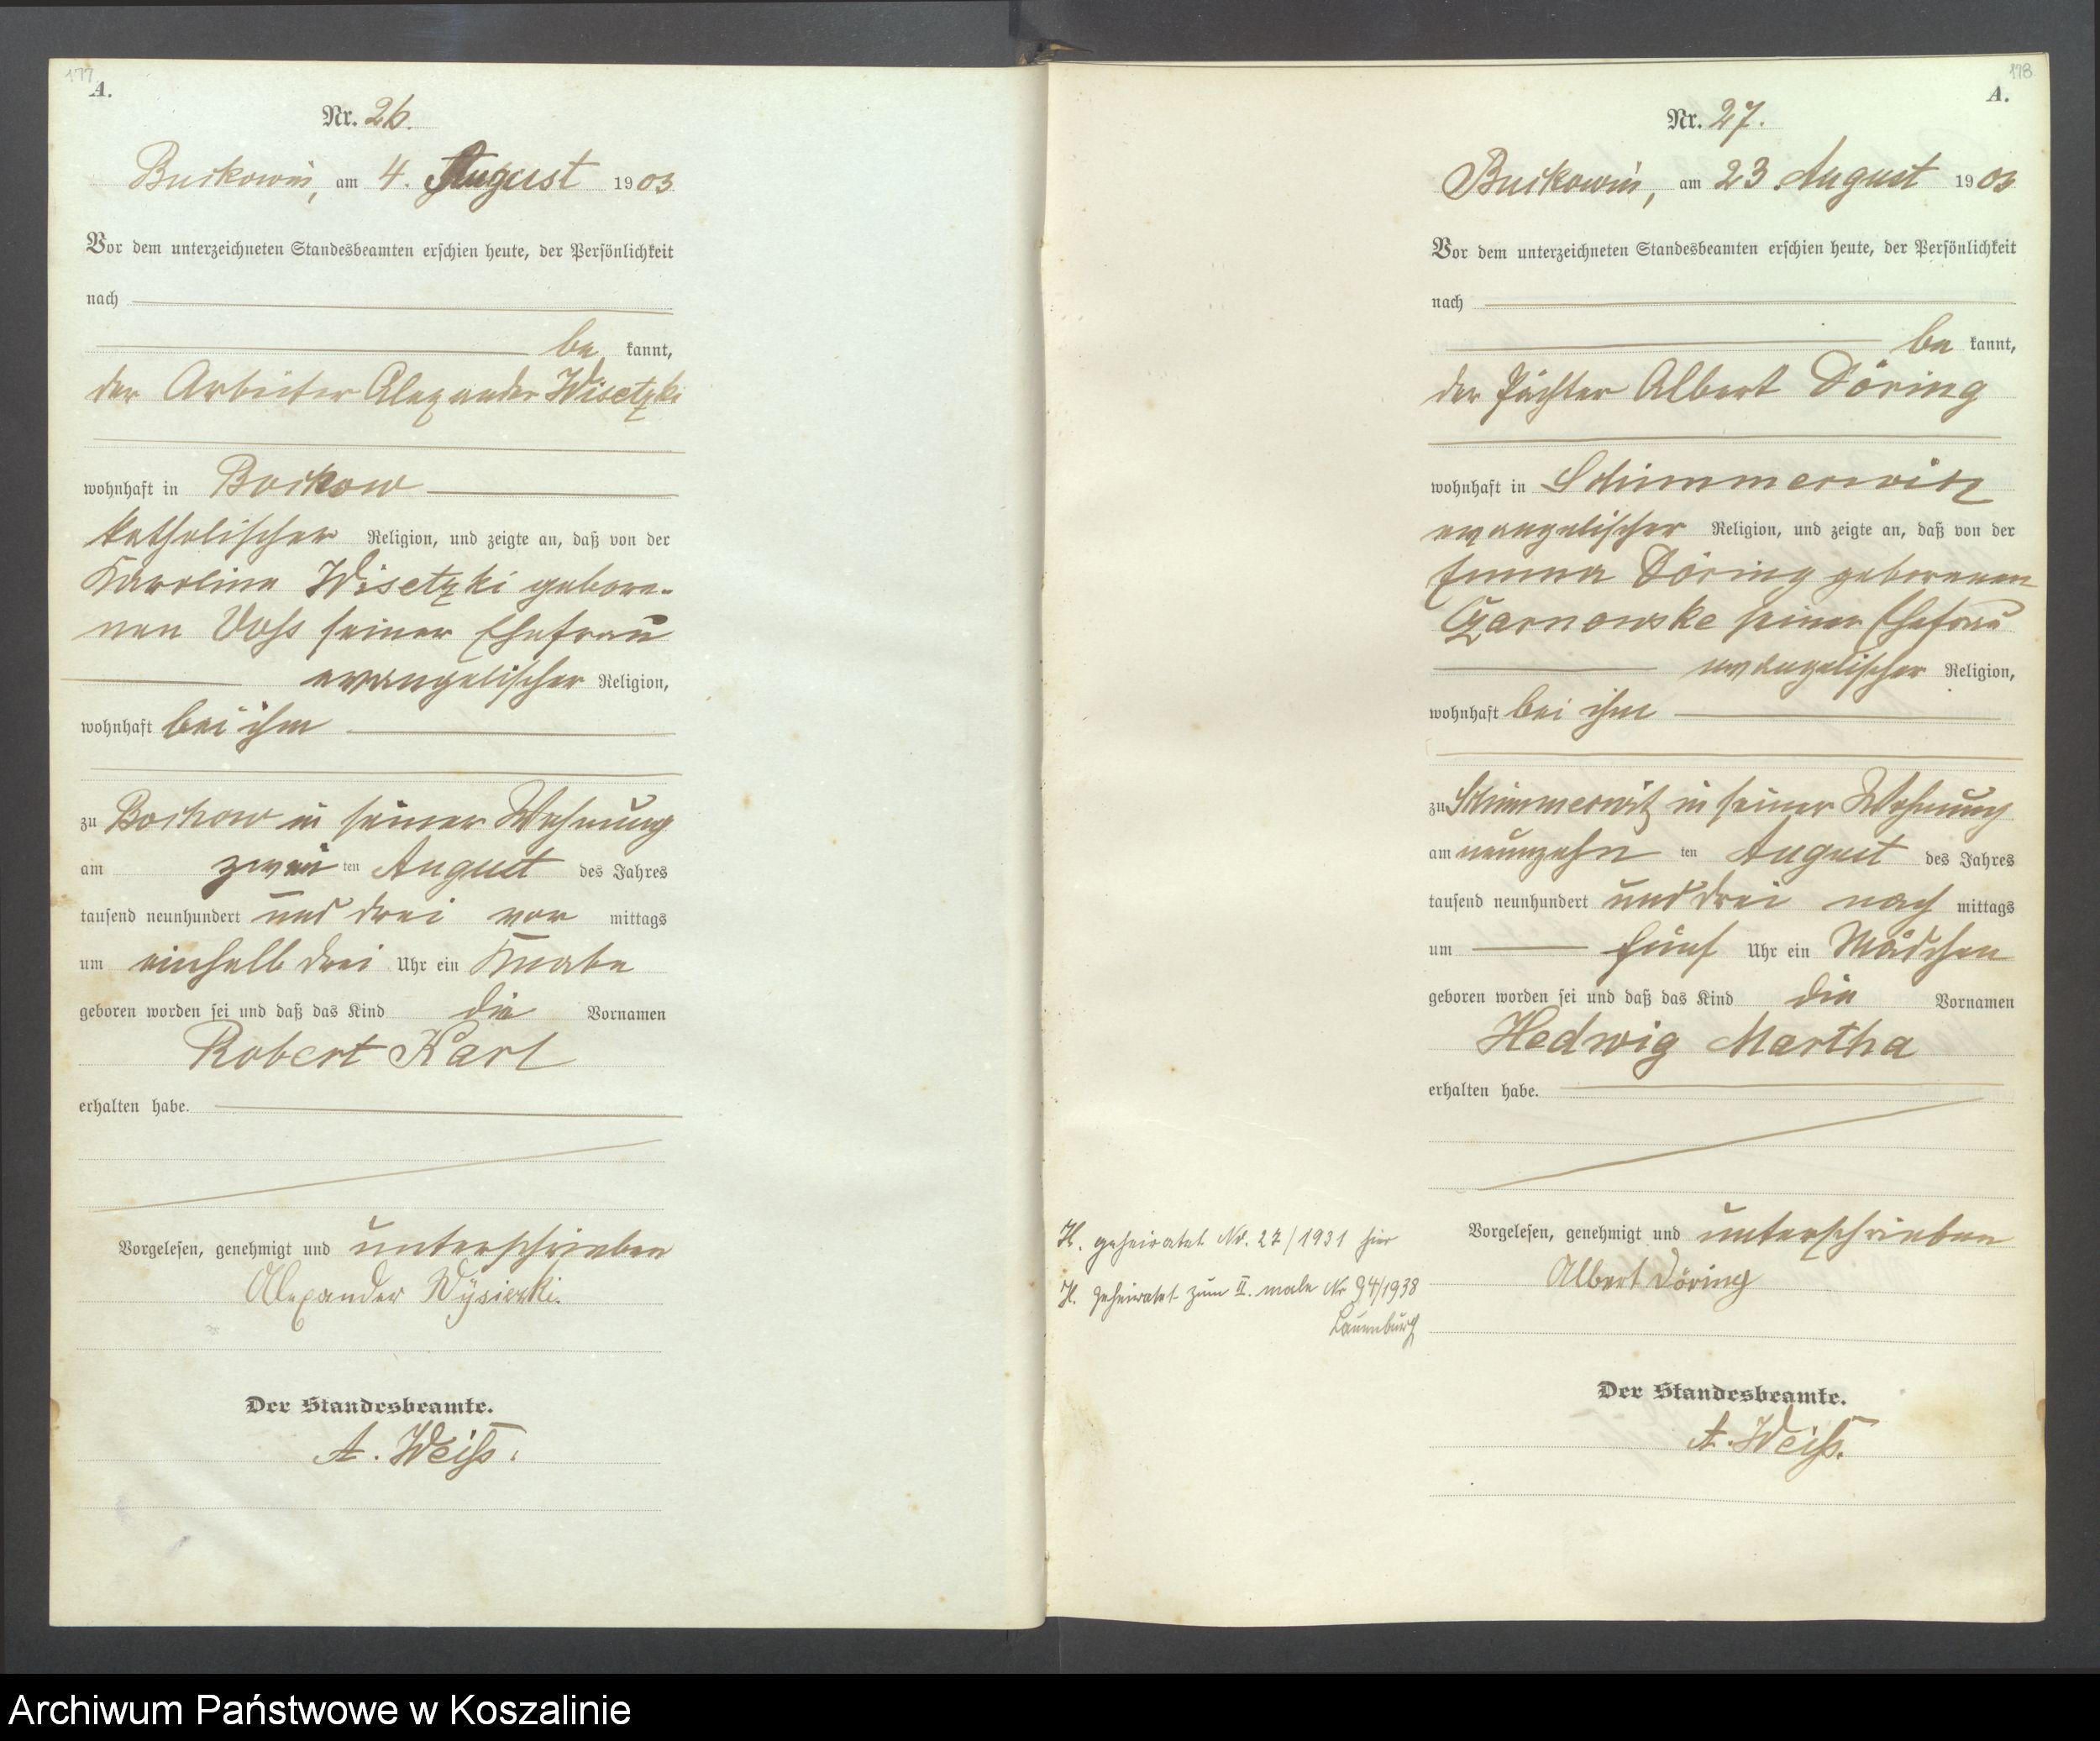 177
A.
Nr. 26.
Buckowin, am 4. August 1903
Vor dem unterzeichneten Standesbeamten erschien heute, der Persönlichkeit
nach
be kannt,
der Arbeiter Alexander Wisetzki
wohnhaft in Bochow
katholischer Religion, und zeigte an, daß von der
Karoline Wisetzki gebore-
nen Voß seiner Ehefrau
evangelischer Religion,
wohnhaft bei ihm
zu Bochow in seiner Wohnung
am zwei ten August des Jahres
tausend neunhundert und drei vor mittags
um einhalb drei Uhr ein Knabe
geboren worden sei und daß das Kind die Vornamen
Robert Karl
erhalten habe.
Vorgelesen, genehmigt und unterschrieben
Alexander Wysiezki.
Der Standesbeamte.
A. Weiß.
178
A.
Nr. 27.
Buckowin, am 23 August 1903
Vor dem unterzeichneten Standesbeamten erschien heute, der Persönlichkeit
nach
be kannt,
der Pächter Albert Döring
wohnhaft in Schimmerwitz
evangelischer Religion, und zeigte an, daß von der
Emma Döring geborenen
Czarnowske seiner Ehefrau
evangelischer Religion,
wohnhaft bei ihm
zu Schimmerwitz in seiner Wohnung
am neunzehn ten August des Jahres
tausend neunhundert und drei nach mittags
um fünf Uhr ein Mädchen
geboren worden sei und daß das Kind die Vornamen
Hedwig Martha
erhalten habe.
Vorgelesen, genehmigt und unterschrieben
Albert Döring
Der Standesbeamte.
A. Weiß.
H. geheiratet Nr. 27/1931 hier
H. geheiratet zum II. male Nr 94/1938
Lauenburg
Archiwum Państwowe w Koszalinie